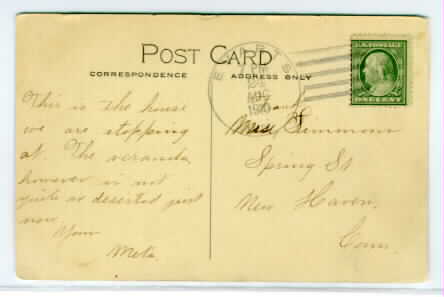 POST CARD
CORRESPONDENCE
ADDRESS ONLY
This is the house
we are stopping
at. The veranda
however is not
quite as deserted just
now.
Your
Meta.
AUG
1910
U.S. POSTAGE
ONE CENT
and
Simmons
Spring St
New Haven,
Conn.